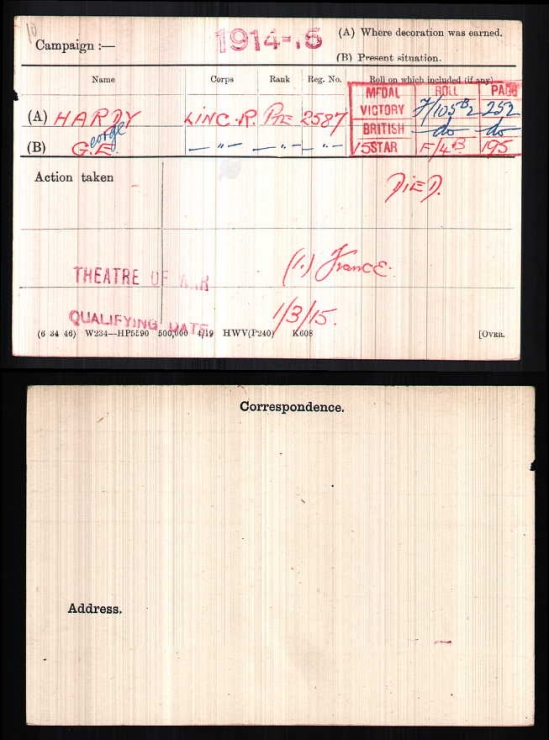 10
Campaign :— 1914-15 (A) Where decoration was earned.
(B) Present situation.
Name Corps Rank Reg. No. Roll on which included (if any)
MEDAL ROLL PAGE
(A) HARDY LINC.R. Pte 2587 VICTORY F/105B2 252
George BRITISH do do
(B) G.E. — " — — " — — " — 15 STAR F/4B 195
Action taken DIED.
THEATRE OF WAR (1.) France.
QUALIFYING DATE 1/3/15.
(6 34 46) W234—HP5590 500,000 4/19 HWV(P240) K608 [OVER.
Correspondence.
Address.